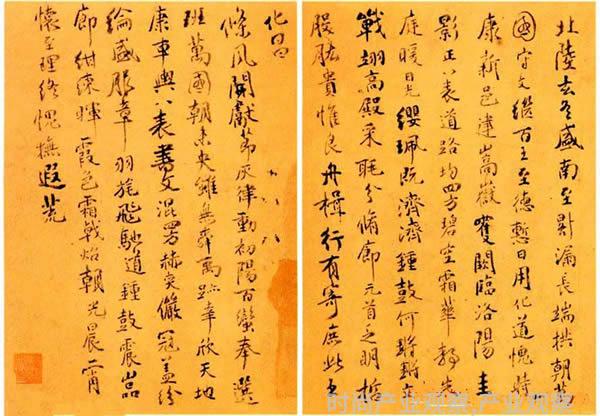 北陸玄冬盛南至晷漏長端拱朝萬
國守文継百王至德慙日用化道愧時
康新邑建嵩嶽雙闕臨洛陽圭
影正八表道路均四方碧空霜華静朱
庭暖日光纓珮既濟濟鍾鼓何鍠鍠文
戟翊高殿采眊分脩廊元首乏明哲
股肱貴惟良舟楫行有寄庶此王
化昌
條風開獻節灰律動初陽百蠻奉
萬國朝未央雖無舜禹跡幸欣天地
康車輿八表書文混四方赫奕儼冠蓋紛
綸盛服章羽旄飛馳道鍾鼓震巖
廊組練輝霞色霜戟炤朝光晨宵
懷至理終愧撫遐荒